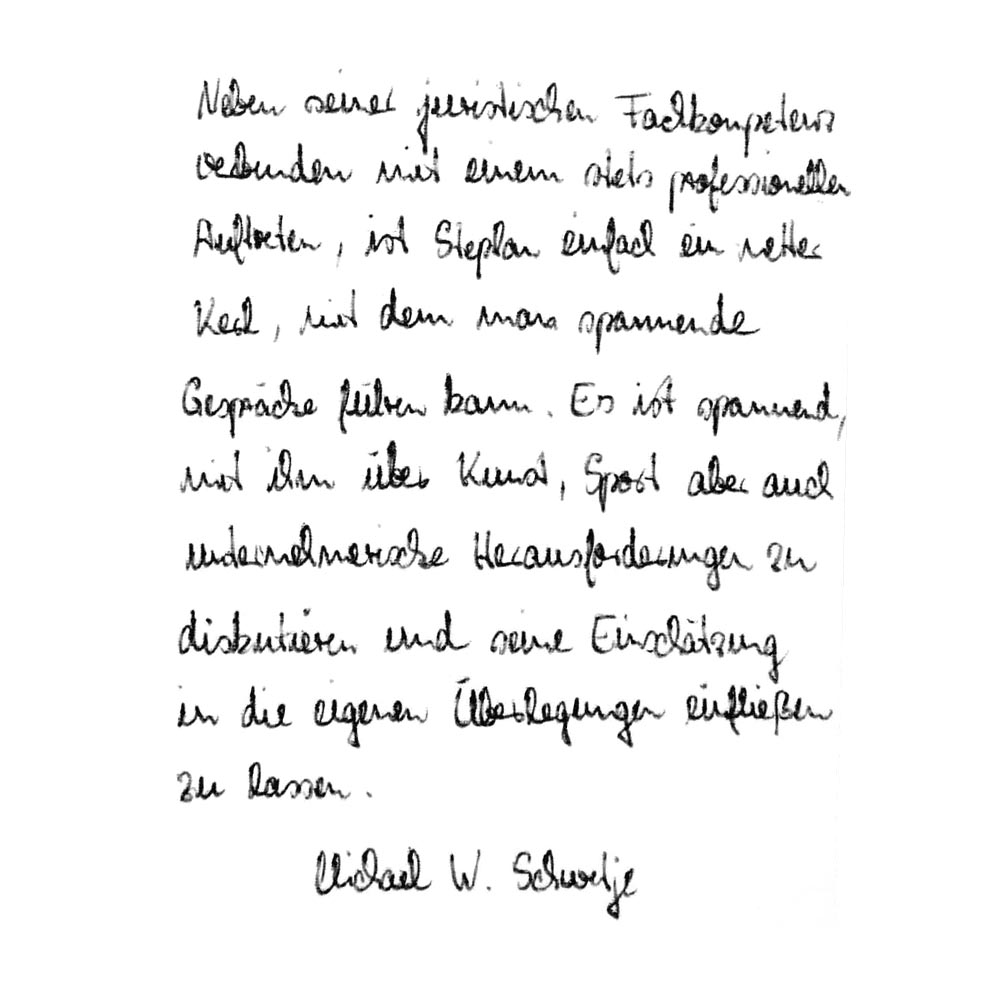 Neben seiner juristischen Fachkompetenz
verbunden mit einem stets professionellen
Auftreten, ist Stephan einfach ein netter
Kerl, mit dem man spannende
Gespräche führen kann. Es ist spannend,
mit ihm über Kunst, Sport aber auch
unternehmerische Herausforderungen zu
diskutieren und seine Einschätzung
in die eigenen Überlegungen einfließen
zu lassen.
Michael W. Schwetje